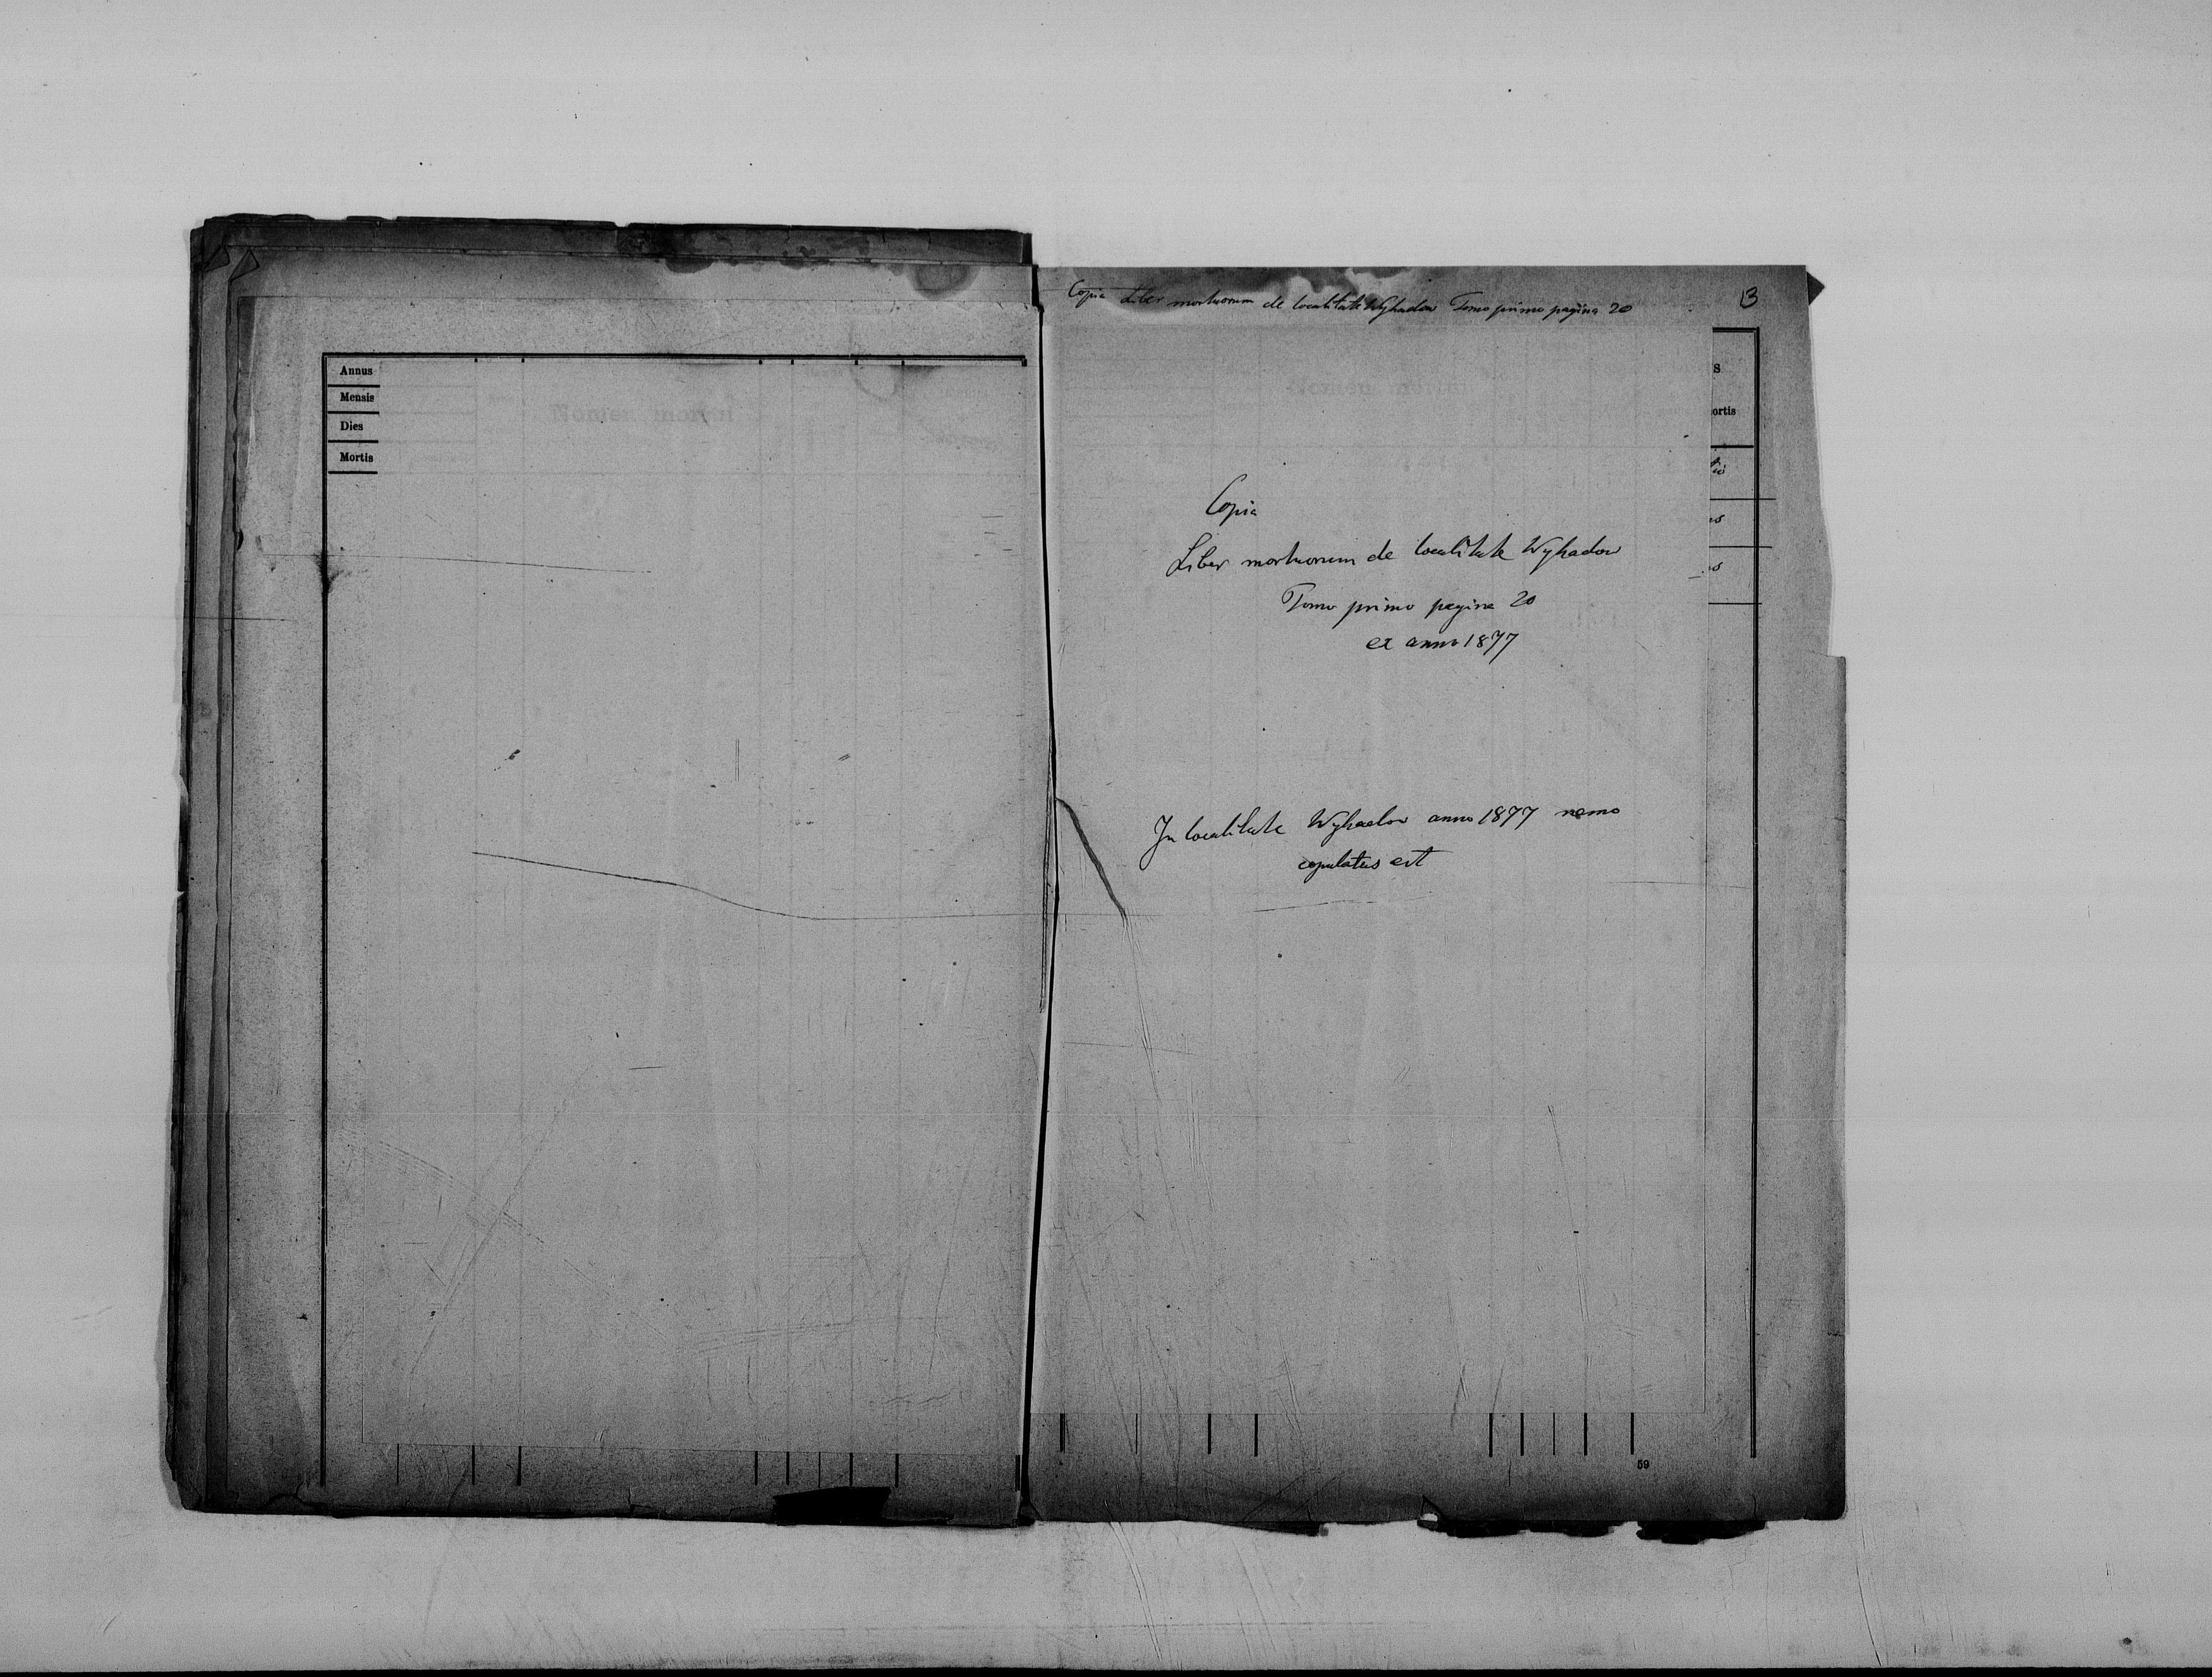 Annus
Mensis
Dies
Mortis
Nomen mortui
Copia Liber mortuorum de localitate Wyhadow Tomo primo pagina 20
13
S
ortis
Copia
Liber mortuorum de localitate Wyhadow
Tomo primo pagina 20
ex anno 1877
In localitate Wyhadow anno 1877 nemo
copulatus est
59